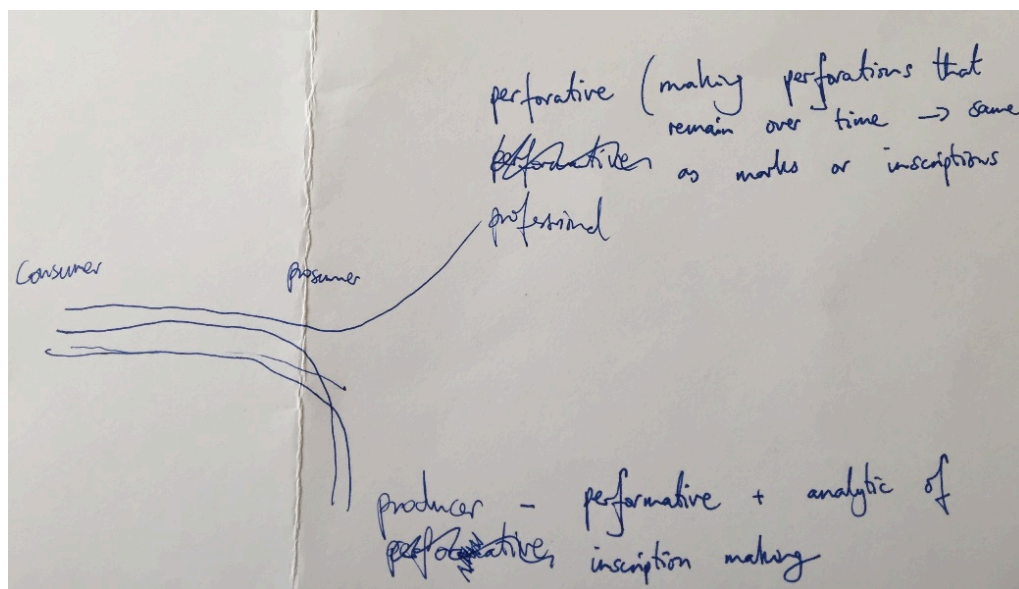 perforative (making perforations that
remain over time → same
performative as marks or inscriptions
professional
Consumer prosumer
producer - performative + analytic of
performative inscription making